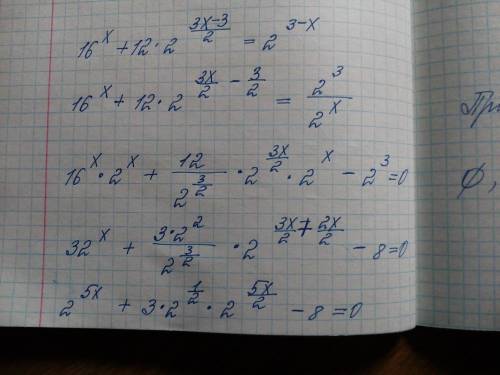 16^x + 12 · 2^{\frac{3x-3}{2}} = 2^{3-x}
16^x + 12 · 2^{\frac{3x}{2} - \frac{3}{2}} = \frac{2^3}{2^x}
При
16^x · 2^x + \frac{12}{2^{\frac{3}{2}}} · 2^{\frac{3x}{2}} · 2^x - 2^3 = 0
∅,
32^x + \frac{3·2^2}{2^{\frac{3}{2}}} · 2^{\frac{3x}{2} + \frac{2x}{2}} - 8 = 0
2^{5x} + 3 · 2^{\frac{1}{2}} · 2^{\frac{5x}{2}} - 8 = 0